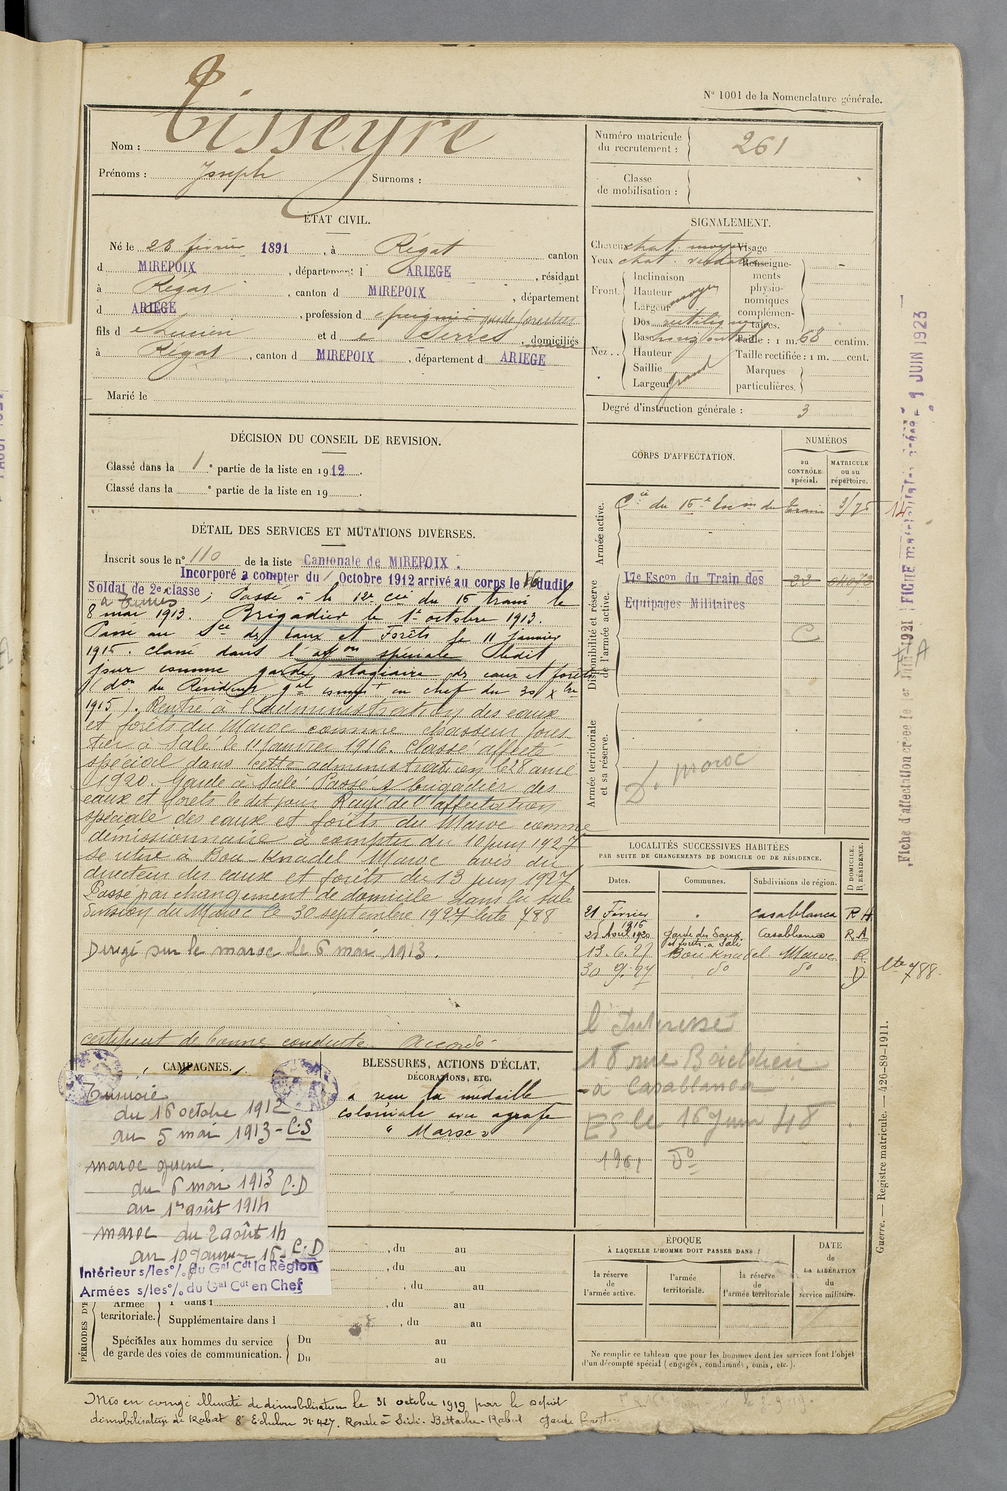 N° 1001 de la Nomenclature générale.
Nom : Tisseyre
Prénoms : Joseph Surnoms :
Numéro matricule du recrutement : 261
Classe de mobilisation :
ÉTAT CIVIL.
Né le 23 février 1891, à Régat canton
d MIREPOIX, département d ARIEGE, résidant
à Régat, canton d MIREPOIX, département
d ARIEGE, profession d garde forestier
fils d e Lucien et d e Serres, domiciliés
à Régat, canton d MIREPOIX, département d ARIEGE
Marié le
SIGNALEMENT.
Cheveux chat. moyen Visage
Yeux chat. verdâtre Renseigne-
ments
physio-
nomiques
complémen-
taires.
Front. Inclinaison
Hauteur moyen
Largeur
Nez. Dos rectiligne
Base horizontale
Hauteur
Saillie
Largeur grand
Taille : 1 m. 68 centim.
Taille rectifiée : 1 m. cent.
Marques particulières.
Degré d'instruction générale : 3
DÉCISION DU CONSEIL DE REVISION.
Classé dans la 1e partie de la liste en 1912.
Classé dans la e partie de la liste en 19
DÉTAIL DES SERVICES ET MUTATIONS DIVERSES.
Inscrit sous le n° 110 de la liste Cantonale de MIREPOIX.
Incorporé à compter du 1 Octobre 1912 arrivé au corps le 16 dudit
Soldat de 2e classe ; Passé à la 12e cie du 15 train le
à Tunis
8 mai 1913. Brigadier le 1er octobre 1913.
Passé au Sce des Eaux et Forêts le 11 Janvier
1915. classé dans l'affon spéciale dudit
jour comme garde stagiaire des eaux et forêts
don du Résident gal commt en chef du 30 Xbre
1915). Rentré à l'administration des eaux
et forêts du Maroc comme chasseur fores
tier à Salé le 11 janvier 1916. Classé affecté
spécial dans cette administration le 28 avril
1920. Garde à Salé Passé brigadier des
eaux et forêts le dit jour Rayé de l'affectation
spéciale des eaux et forêts du Maroc comme
démissionnaire à compter du 10 juin 1927
se retire à Bou Knadel Maroc avis du
directeur des eaux et forêts du 13 juin 1927
Passé par changement de domicile dans la sub
division du Maroc le 30 septembre 1927 liste 788
Dirigé sur le maroc le 6 mai 1913.
certificat de bonne conduite accordé
CORPS D'AFFECTATION.
NUMÉROS
AU CONTRÔLE spécial.
MATRICULE ou au répertoire.
Armée active.
Cie du 15e Escon du Train
Disponibilité et réserve de l'armée active.
17e Escon du Train des
Equipages Militaires
C
Armée territoriale et sa réserve.
D. Maroc
LOCALITÉS SUCCESSIVES HABITÉES
PAR SUITE DE CHANGEMENTS DE DOMICILE OU DE RÉSIDENCE.
Dates. Communes. Subdivisions de région. D DOMICILE. R RÉSIDENCE.
21 Février 1916 " Casablanca R A
28 Avril 1920 garde des Eaux et forêts à Salé Casablanca R.A
13. 6. 27 Bou Knadel Maroc R.
30. 9. 27 do do D
lte 788.
l'Intéressé
18 rue Boieldieu
- à Casablanca
ES le 16 Juin 48
1961 do
CAMPAGNES.
Tunisie
du 16 octobre 1912
au 5 mai 1913 - C.S
maroc guerre.
du 6 mai 1913 C.D
au 1er août 1914
maroc du 2 août 14
au 10 Janvier 16 - C.D
Intérieur s/les o/. du Gal Cdt la Région
Armées s/les o/. du Gal Cdt en Chef
BLESSURES, ACTIONS D'ÉCLAT,
DÉCORATIONS, ETC.
a reçu la médaille
coloniale avec agrafe
"Maroc"
, du au
, du au
, du au
Armée territoriale. 1e dans l , du au
Supplémentaire dans l , du au
Spéciales aux hommes du service de garde des voies de communication. Du au
Du au
PÉRIODES D'E
ÉPOQUE
À LAQUELLE L'HOMME DOIT PASSER DANS :
la réserve de l'armée active.
l'armée territoriale.
la réserve de l'armée territoriale
DATE de LA LIBÉRATION du service militaire.
Ne remplir ce tableau que pour les hommes dont les services font l'objet
d'un décompte spécial (engagés, condamnés, omis, etc.).
Mis en congé illimité de démobilisation le 31 octobre 1919 par le dépôt
démobilisateur de Rabat 8e Echelon N° 427. Retiré à Sidi-Bettache-Rabat Garde
Guerre. — Registre matricule. — 426-89-1911.